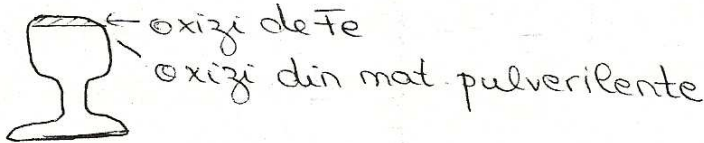 oxizi de Fe
oxizi din mat. pulverilente